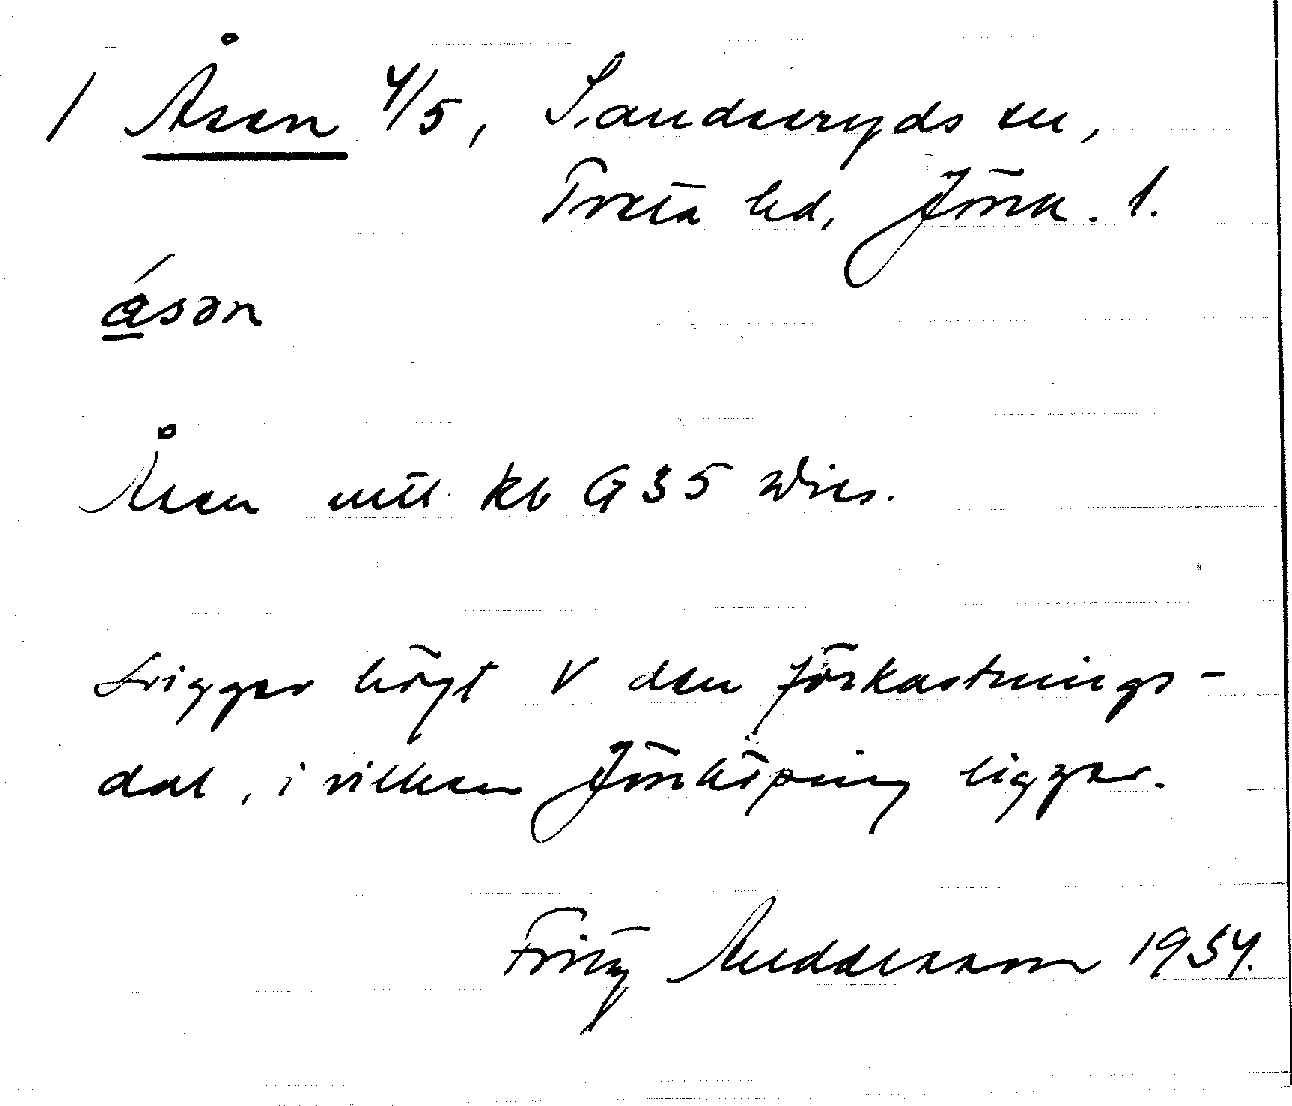 1 Åsen 4/5, Sandseryds sn,
Tveta hd, Jönk. l.
ásən
Åsen kb G35
Ligger högt V den förkastnings-
dal, i vilken Jönköping ligger.
Fritz 1954.